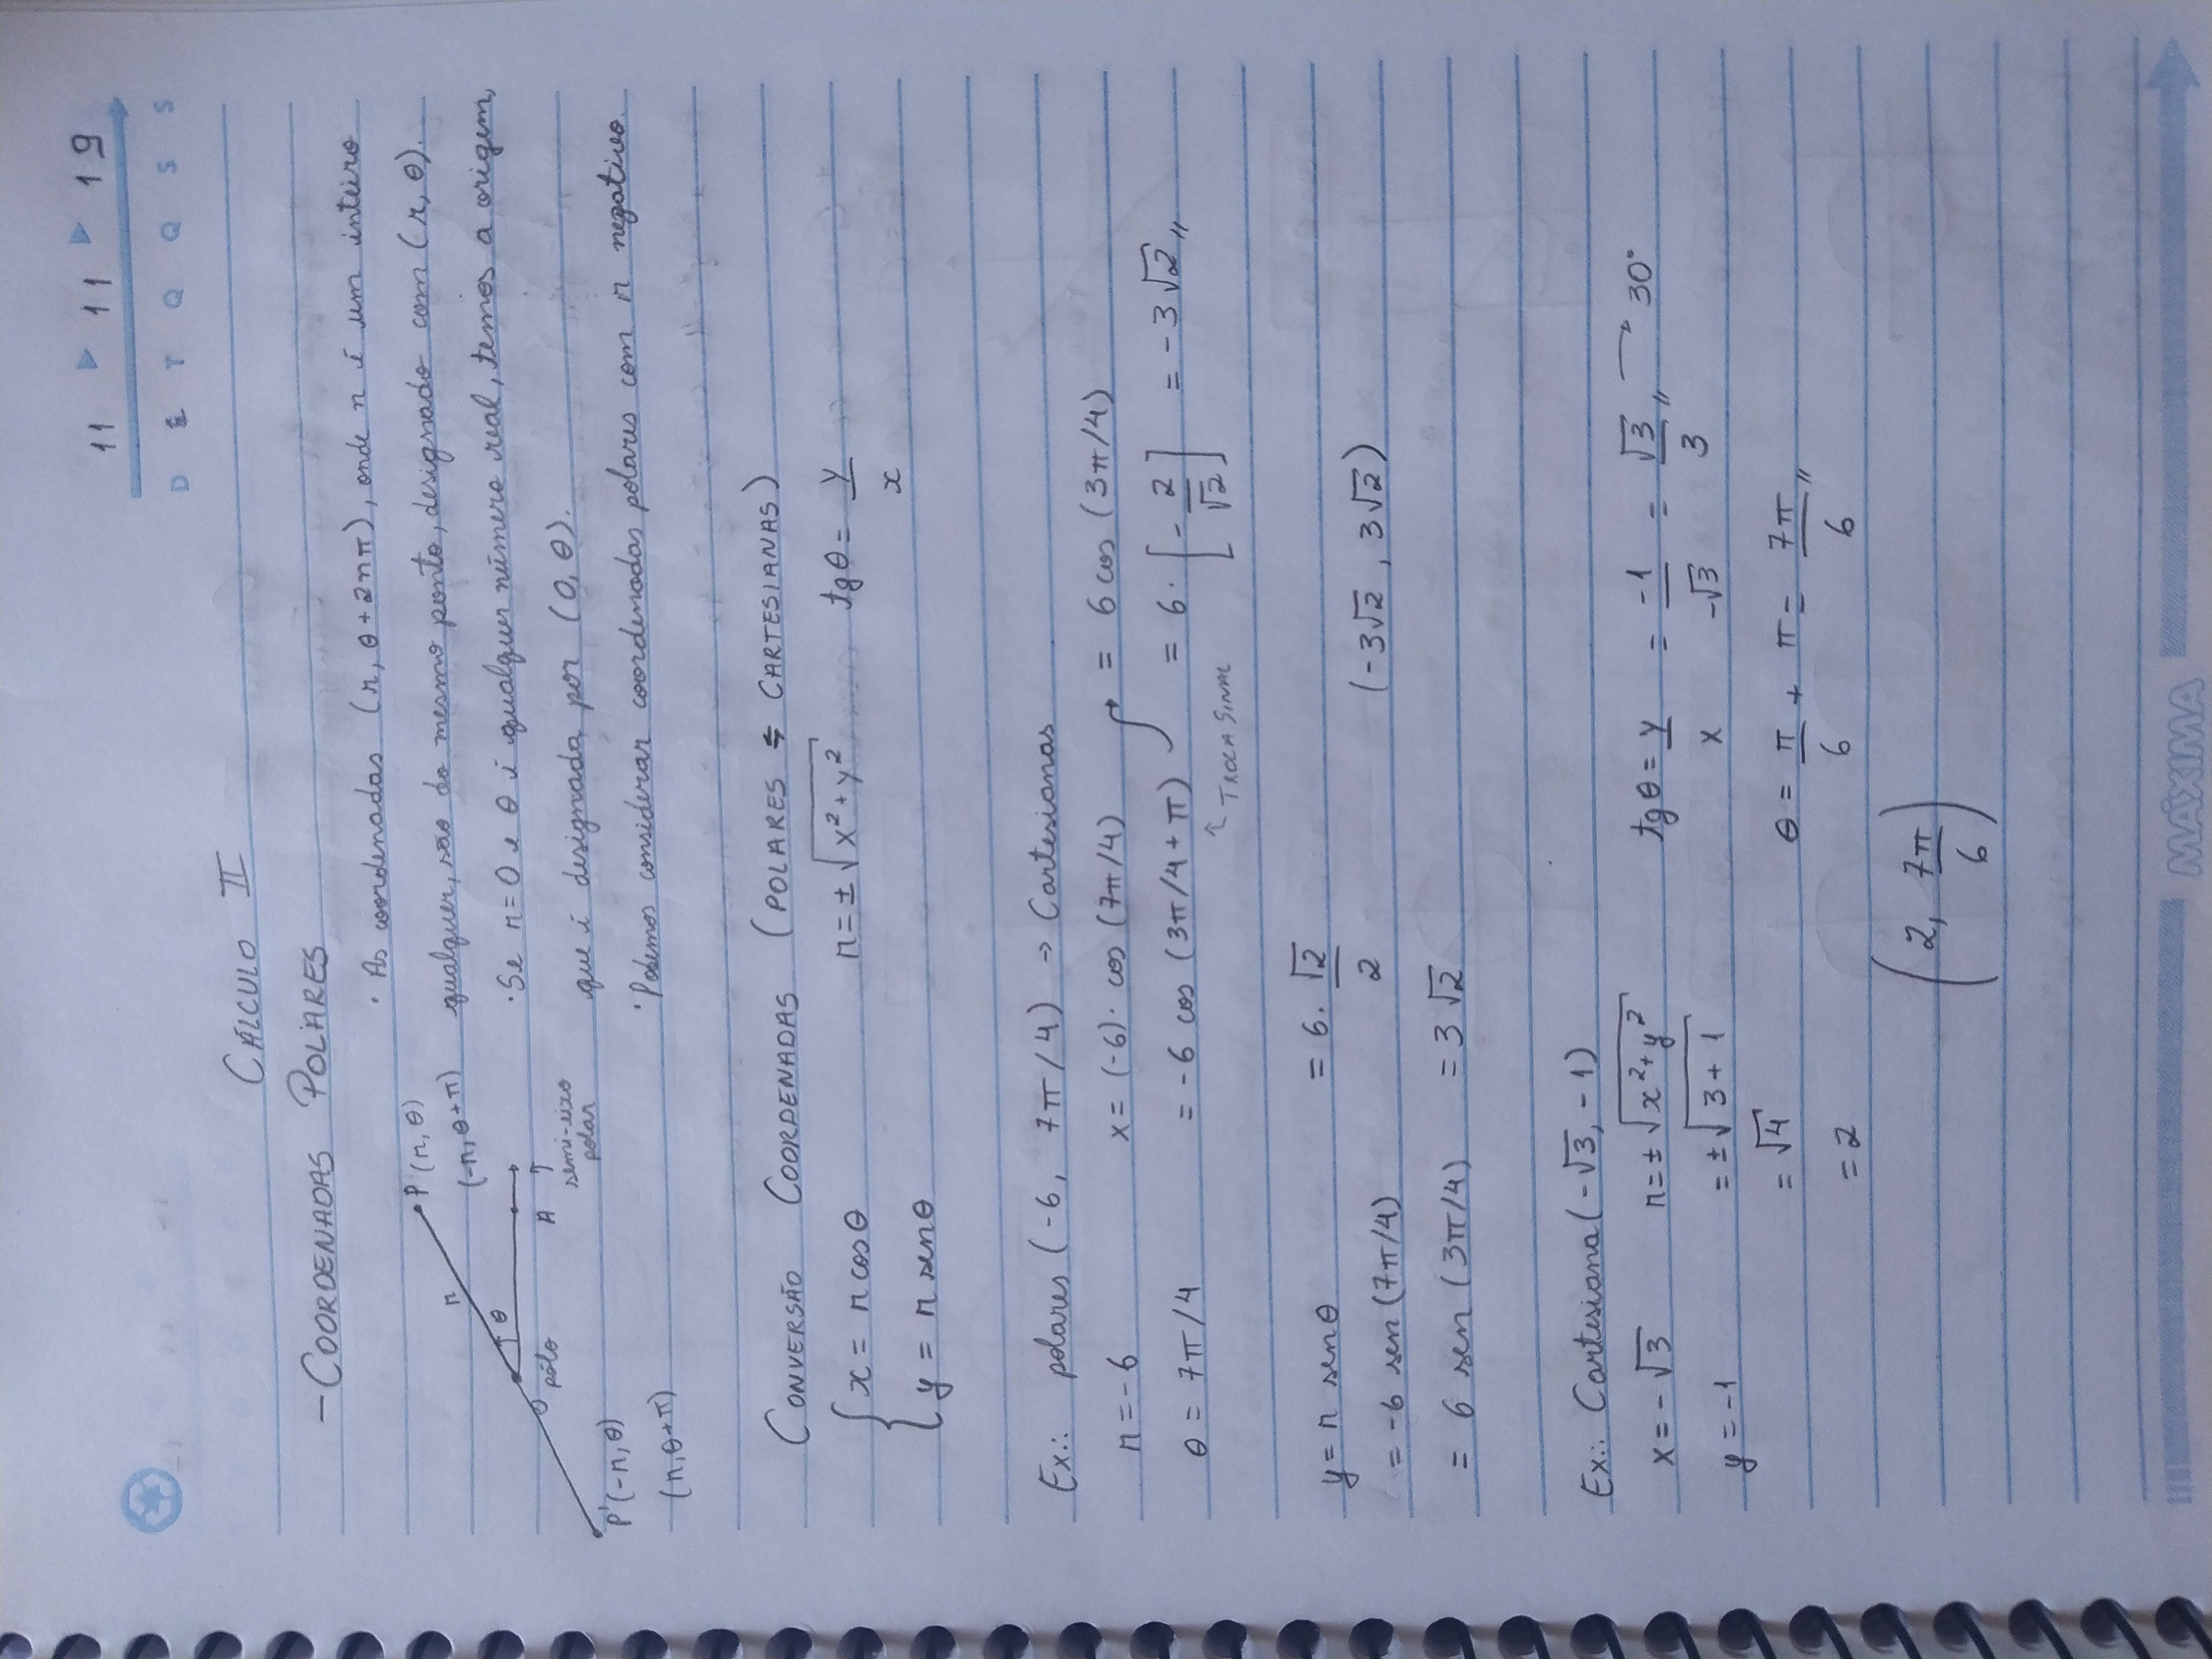 11 ▶ 11 ▶ 19
D S T Q Q S S
CÁLCULO II
- COORDENADAS POLARES
P (r, θ)
(-r, θ+π)
r
θ
O pólo
A
semi-eixo
polar
P' (-r, θ)
(r, θ+π)
· As coordenadas (r, θ+2nπ), onde n é um inteiro
qualquer, são do mesmo ponto, designado com (r, θ).
· Se r=0 e θ é qualquer número real, temos a origem,
que é designada por (0, θ).
· Podemos considerar coordenadas polares com r negativo.
CONVERSÃO COORDENADAS (POLARES ⇆ CARTESIANAS)
{ x = r cos θ r = ± √(x² + y²) tg θ = y/x
y = r sen θ
Ex.: polares (-6, 7π/4) → Cartesianas
r = -6 x = (-6) · cos (7π/4) = 6 cos (3π/4)
θ = 7π/4 = -6 cos (3π/4 + π) = 6 · [- 2/√2] = -3√2 //
↑ TROCA SINAL
y = r sen θ = 6 · √2/2
= -6 sen (7π/4) (-3√2, 3√2)
= 6 sen (3π/4) = 3√2
Ex.: Cartesiana (-√3, -1)
x = -√3 r = ± √(x² + y²) tg θ = y/x = -1/-√3 = √3/3 // → 30°
y = -1 = ± √(3 + 1)
= √4 θ = π/6 + π = 7π/6 //
= 2
(2, 7π/6)
MÁXIMA